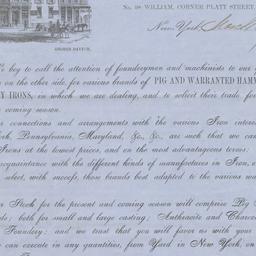 No. 98 WILLIAM, CORNER PLATT STREET,
New York, March
GEORGE DAVIS, DR.
beg to call the attention of foundrymen and machinists to our
on the other side, for various brands of PIG AND WARRANTED HAMM
Y IRONS, in which we are dealing, and to solicit their trade for
coming season.
r connections and arrangements with the various Iron interes
ork, Pennsylvania, Maryland, &c., &c., are such that we can
Irons at the lowest prices, and on the most advantageous terms;
acquaintance with the different kinds of manufactures in Iron, e
select, with success, those brands best adapted to the various wa
r Stock for the present and coming season will comprise Pig
ds; both for small and large casting; Anthracite and Charco
Foundery; and we trust that you will favor us with your
can execute in any quantities, from Yard in New York, on